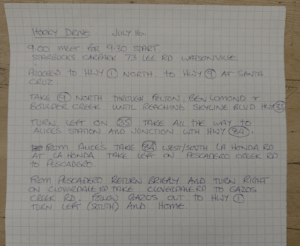 MOGLY DRIVE JULY 16
9:00 MEET FOR 9:30 START
STARBUCKS CARPARK 73 LEE RD WATSONVILLE
PROCEED TO HWY 1 NORTH TO HWY 9 AT SANTA
CRUZ
TAKE 9 NORTH THROUGH FELTON, BEN LOMOND &
BOULDER CREEK UNTIL REACHING SKYLINE BLVD 35
TURN LEFT ON 35 TAKE ALL THE WAY TO
ALICE'S STATION AND JUNCTION WITH HWY 84
FROM ALICES TAKE 84 WEST/SOUTH LA HONDA RD
AT LA HONDA TAKE LEFT ON PESCADERO CREEK RD
TO PESCADERO
FROM PESCADERO RETURN BRIEFLY AND TURN RIGHT
ON CLOVERDALE RD TAKE CLOVERDALE RD TO GAZOS
CREEK RD. FOLLOW GAZOS OUT TO HWY 1
TURN LEFT (SOUTH) AND HOME